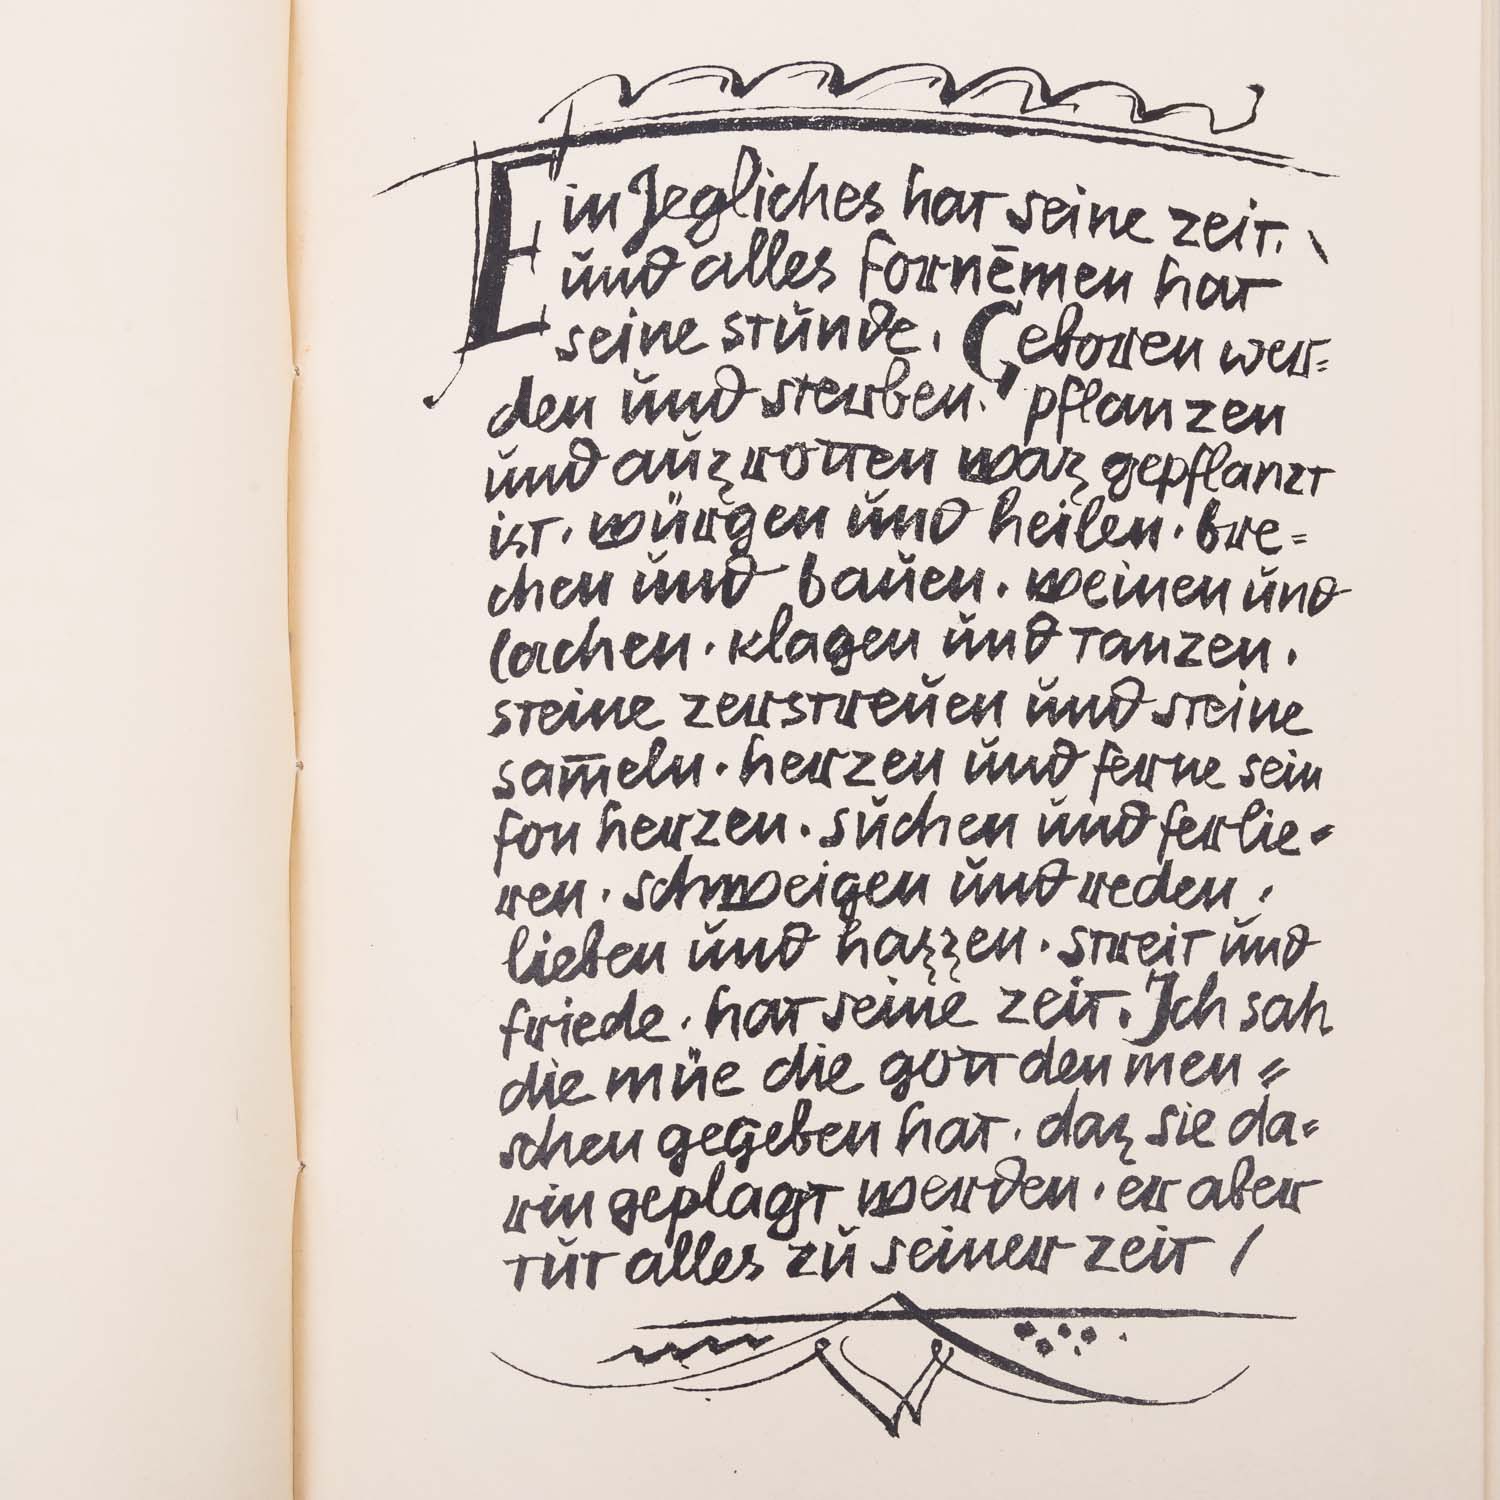 Ein Jegliches hat seine zeit.
und alles fornēmen hat
seine stunde. Geboren wer=
den und sterben. pflanzen
und auʒrotten waʒ gepflanzt
ist. würgen und heilen. bre=
chen und bauen. weinen und
lachen. klagen und tanzen.
steine zerstreuen und steine
sam̄eln. herzen und ferne sein
fon herzen. suchen und ferlie=
ren. schweigen und reden.
lieben und haʒʒen. streit und
friede. hat seine zeit. Ich sah
die müe die gott den men=
schen gegeben hat. daʒ sie da=
rin geplagt werden. er aber
tut alles zu seiner zeit /